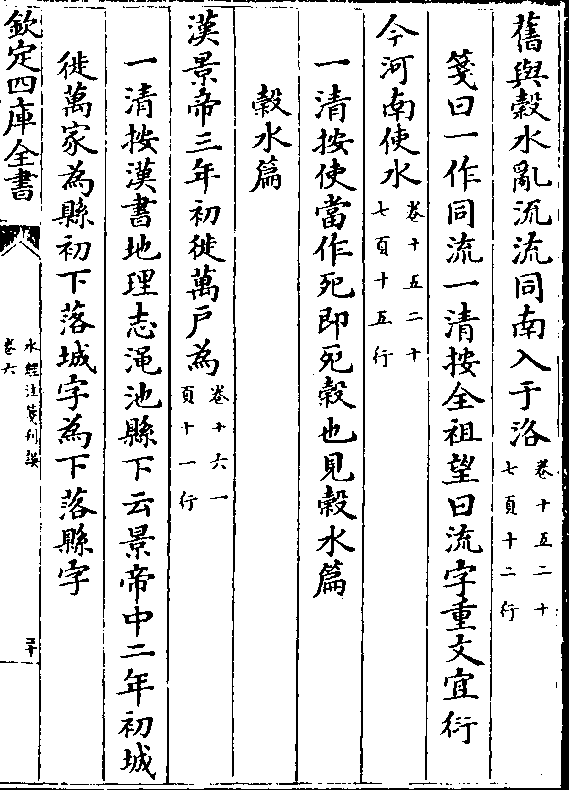 舊與榖水亂流流同南入于洛卷十五二十七頁十二行
箋曰一作同流一清按全祖望曰流字重文宜衍
今河南使水卷十五二十七頁十五行
一清按使當作死即死榖也見榖水篇
榖水篇
漢景帝三年初徙萬戸為卷十六一頁十一行
一清按漢書地理志渑池縣下云景帝中二年初城
徙萬家為縣初下落城字為下落縣字
欽定四庫全書
水經注箋刋誤
卷六
二十